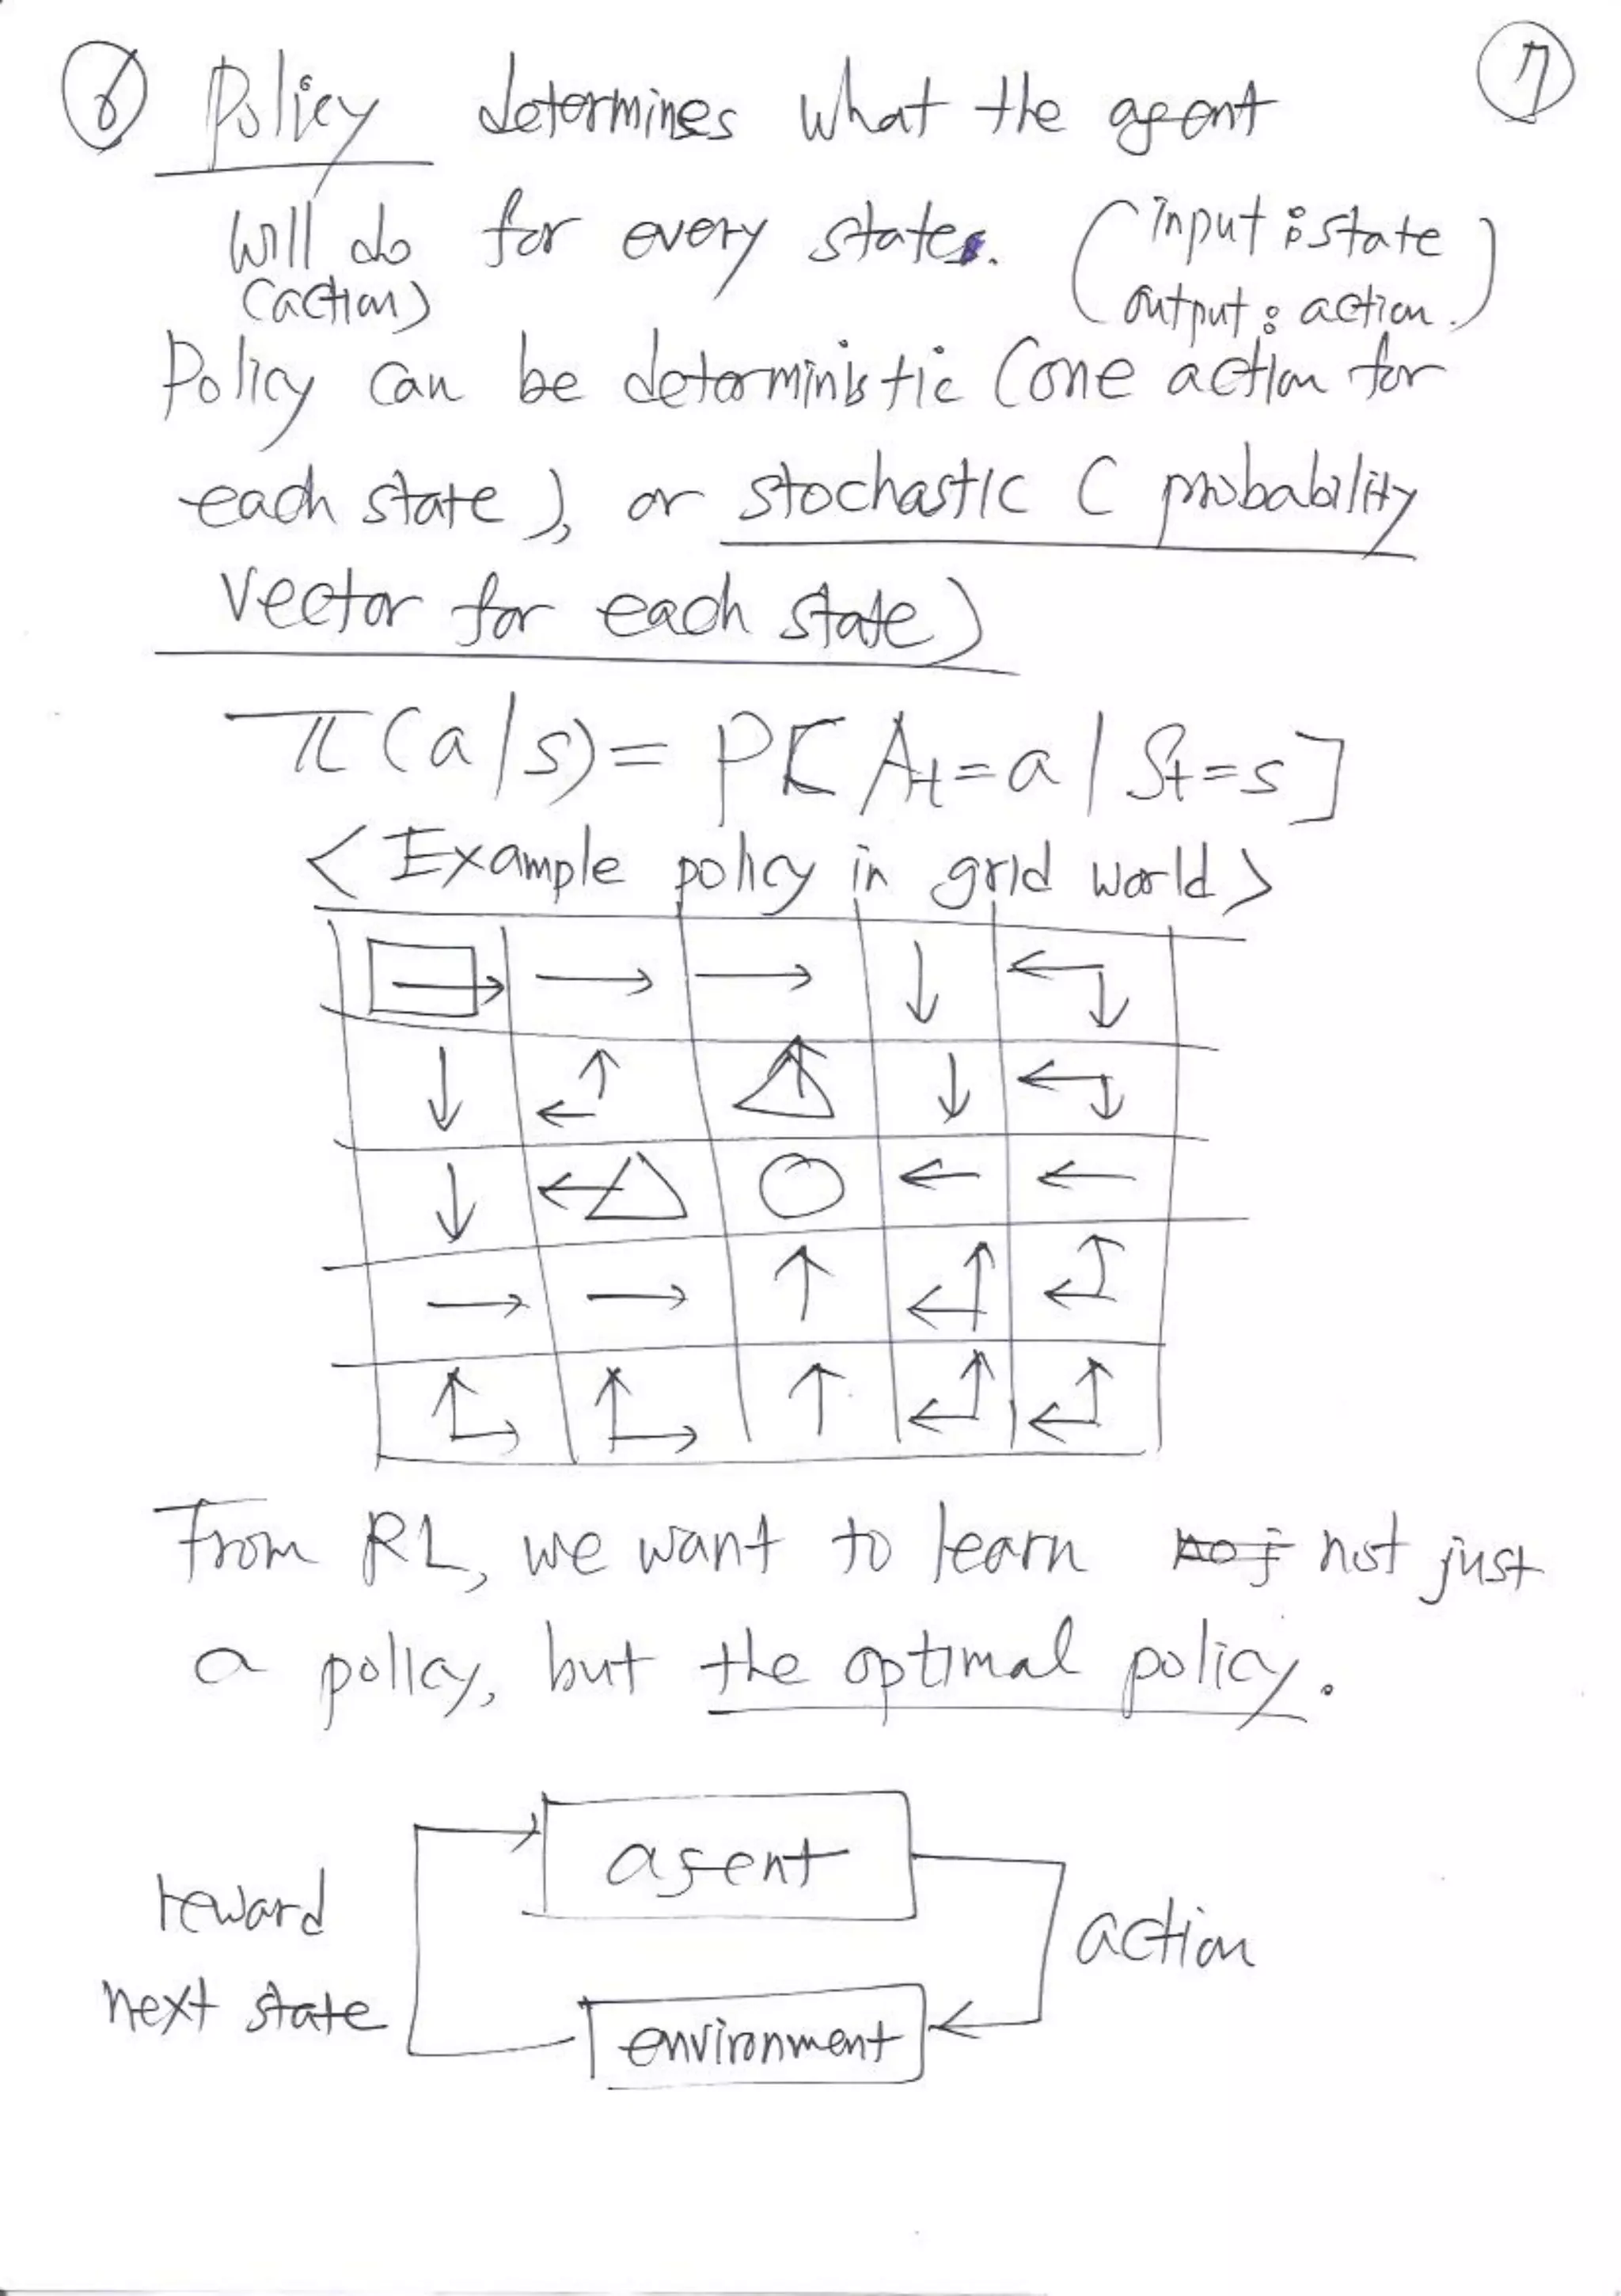 ⑥ Policy determines what the agent
⑦
will do for every states. (input : state
(action) output : action.)
Policy can be deterministic (one action for
each state), or stochastic (probability
vector for each state)
π(a|s) = P[At=a | St=s]
<Example policy in grid world>
From RL, we want to learn not just
a policy, but the optimal policy.
agent
reward
action
next state
environment